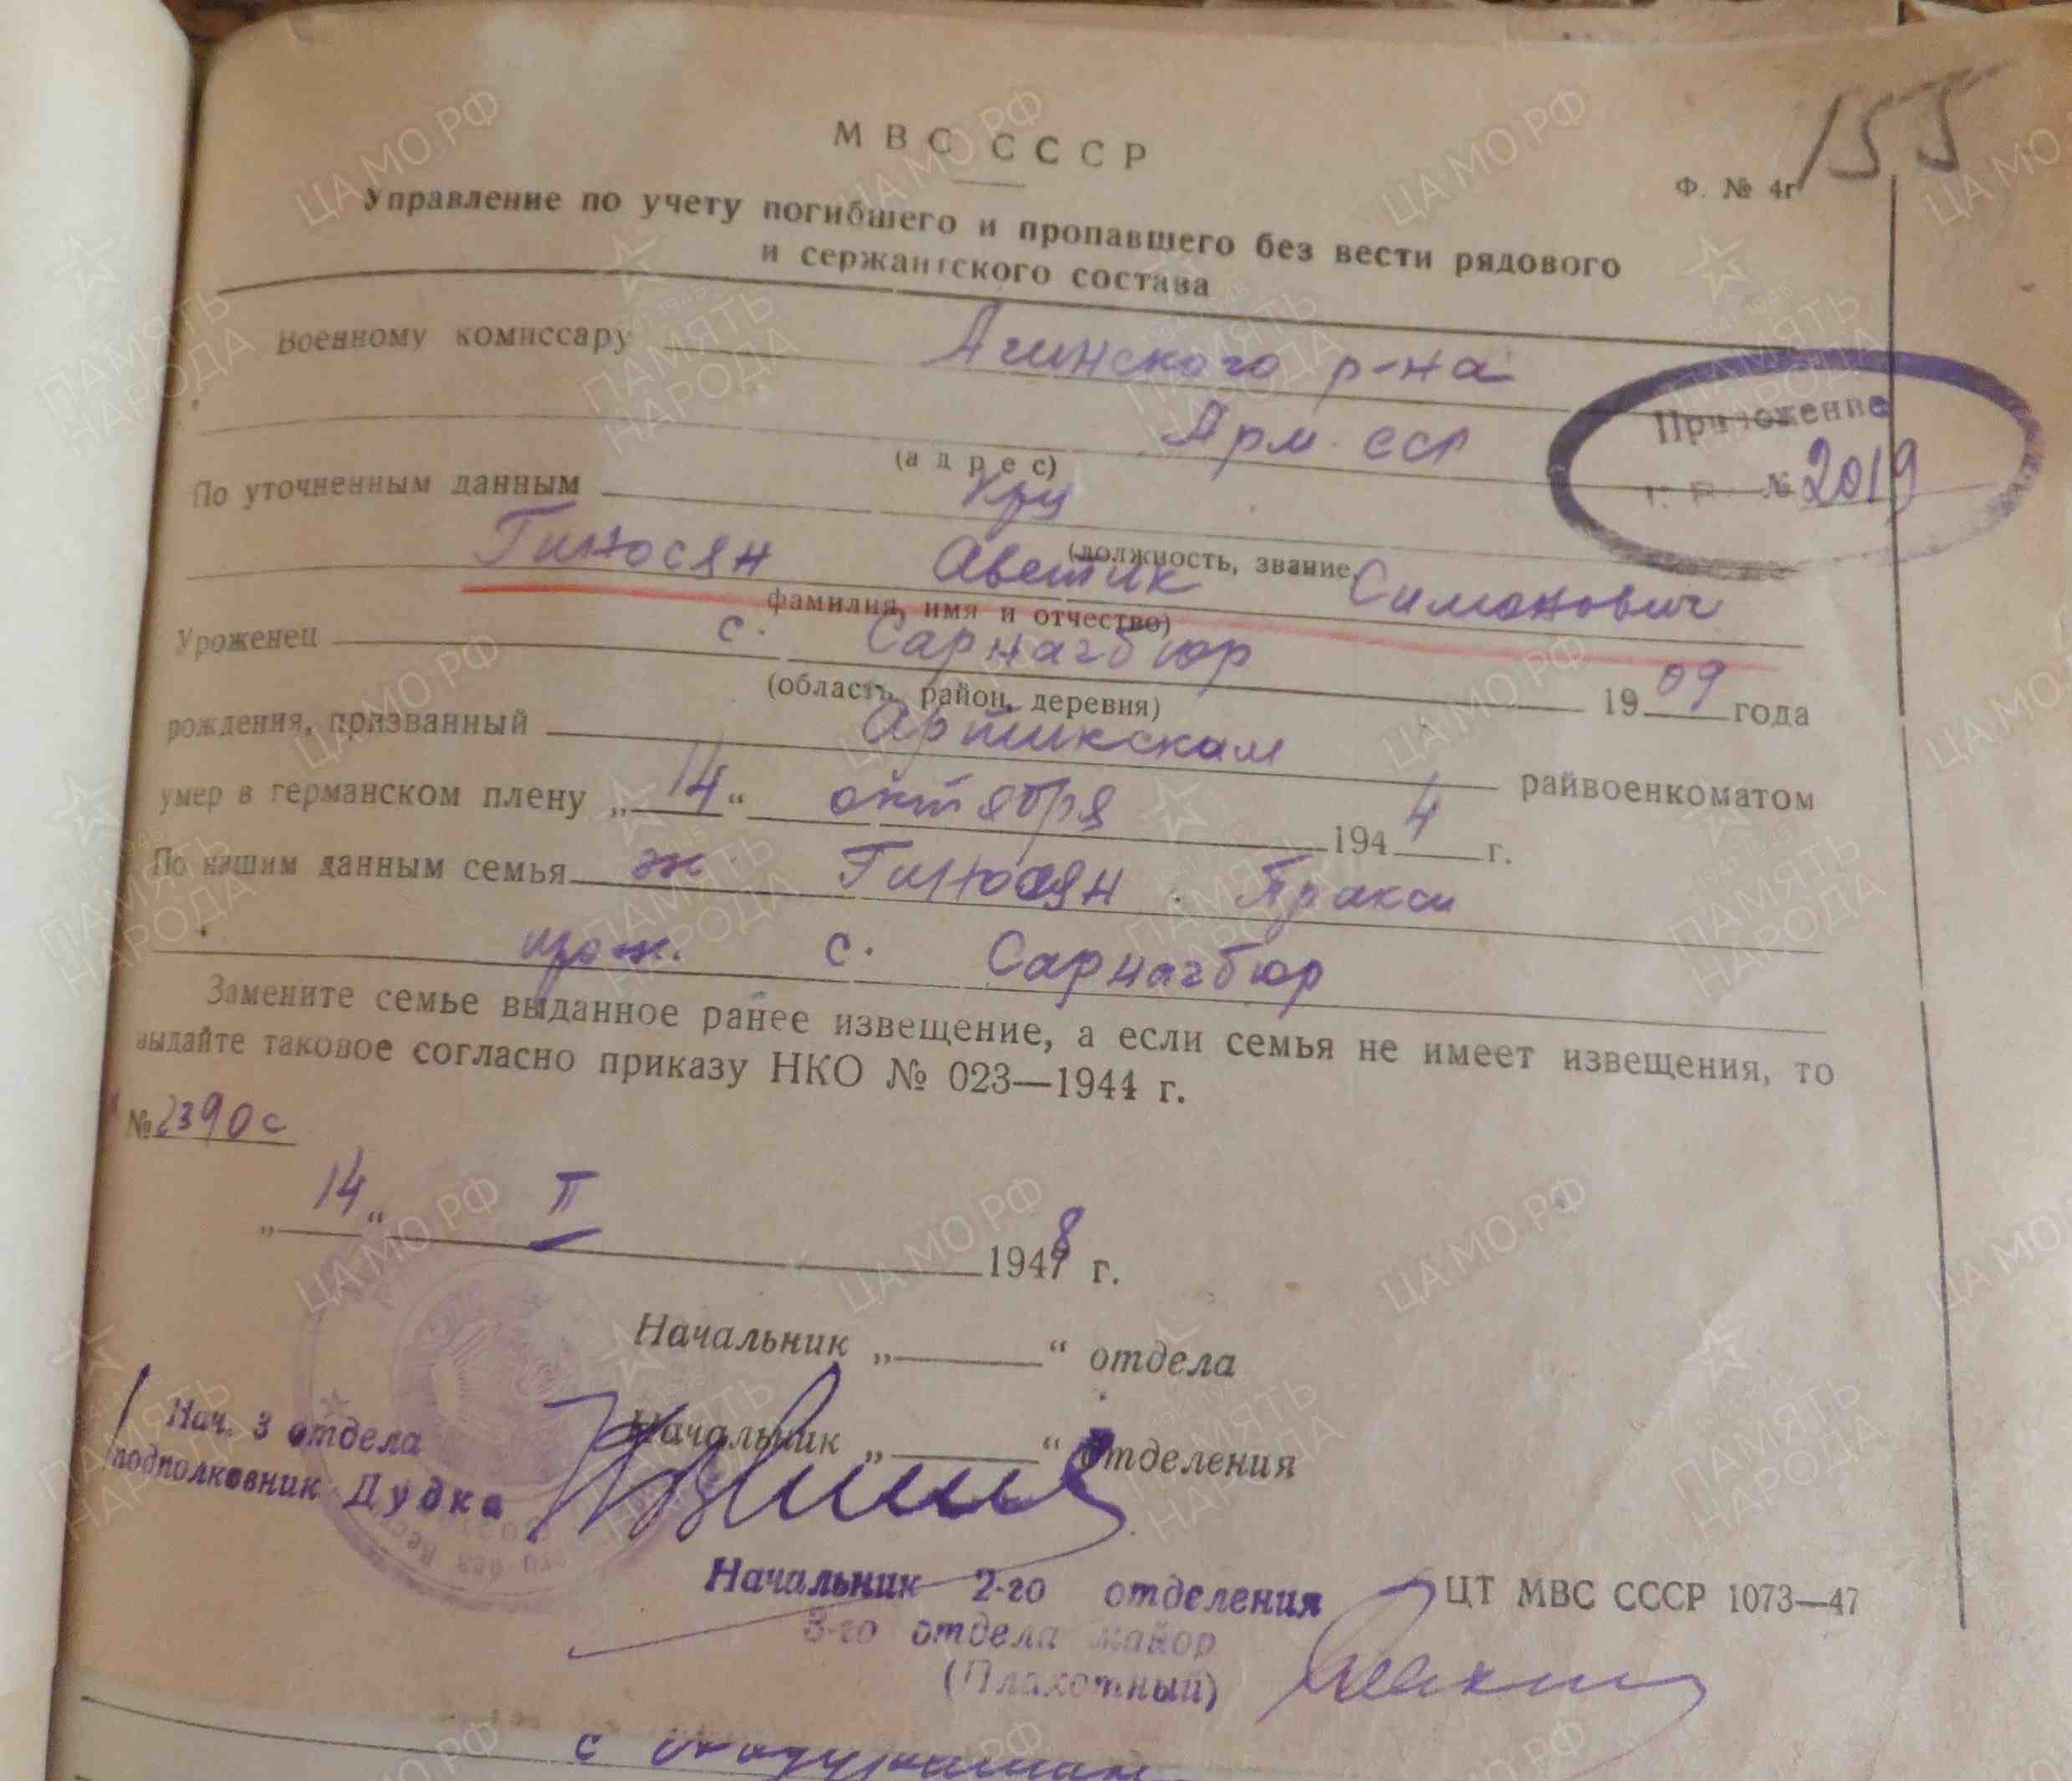 155
МВС СССР
Ф. № 4г
Управление по учету погибшего и пропавшего без вести рядового
и сержантского состава
Военному комиссару Агинского р-на
Арм. ССР
(адрес)
Приложение
№ 2019
По уточненным данным Кр-ц
(должность, звание,
Гиносян Аветик Симонович
фамилия, имя и отчество)
Уроженец с. Сарнагбюр 1909 года
(область, район, деревня)
рождения, призванный Артикским райвоенкоматом
умер в германском плену „14“ октября 1944 г.
По нашим данным семья ж. Гиносян
прож. с. Сарнагбюр
Замените семье выданное ранее извещение, а если семья не имеет извещения, то
выдайте таковое согласно приказу НКО № 023—1944 г.
№ 2390с
„14“ II 1948 г.
Начальник „ “ отдела
Нач. 3 отдела
подполковник Дудка
Начальник „ “ отделения
Начальник 2-го отделения
3-го отдела майор
(Плахотный)
ЦТ МВС СССР 1073—47
с
ЦА МО РФ
ПАМЯТЬ НАРОДА